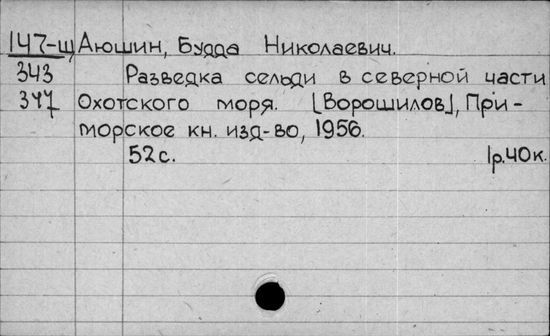 147-щ Аюшин, Будда Николаевич.
343 Разведка сельди в северной части
347 Охотского моря. [Ворошилов], При-
морское кн. изд-во, 1956.
52 с. 1р.40к.